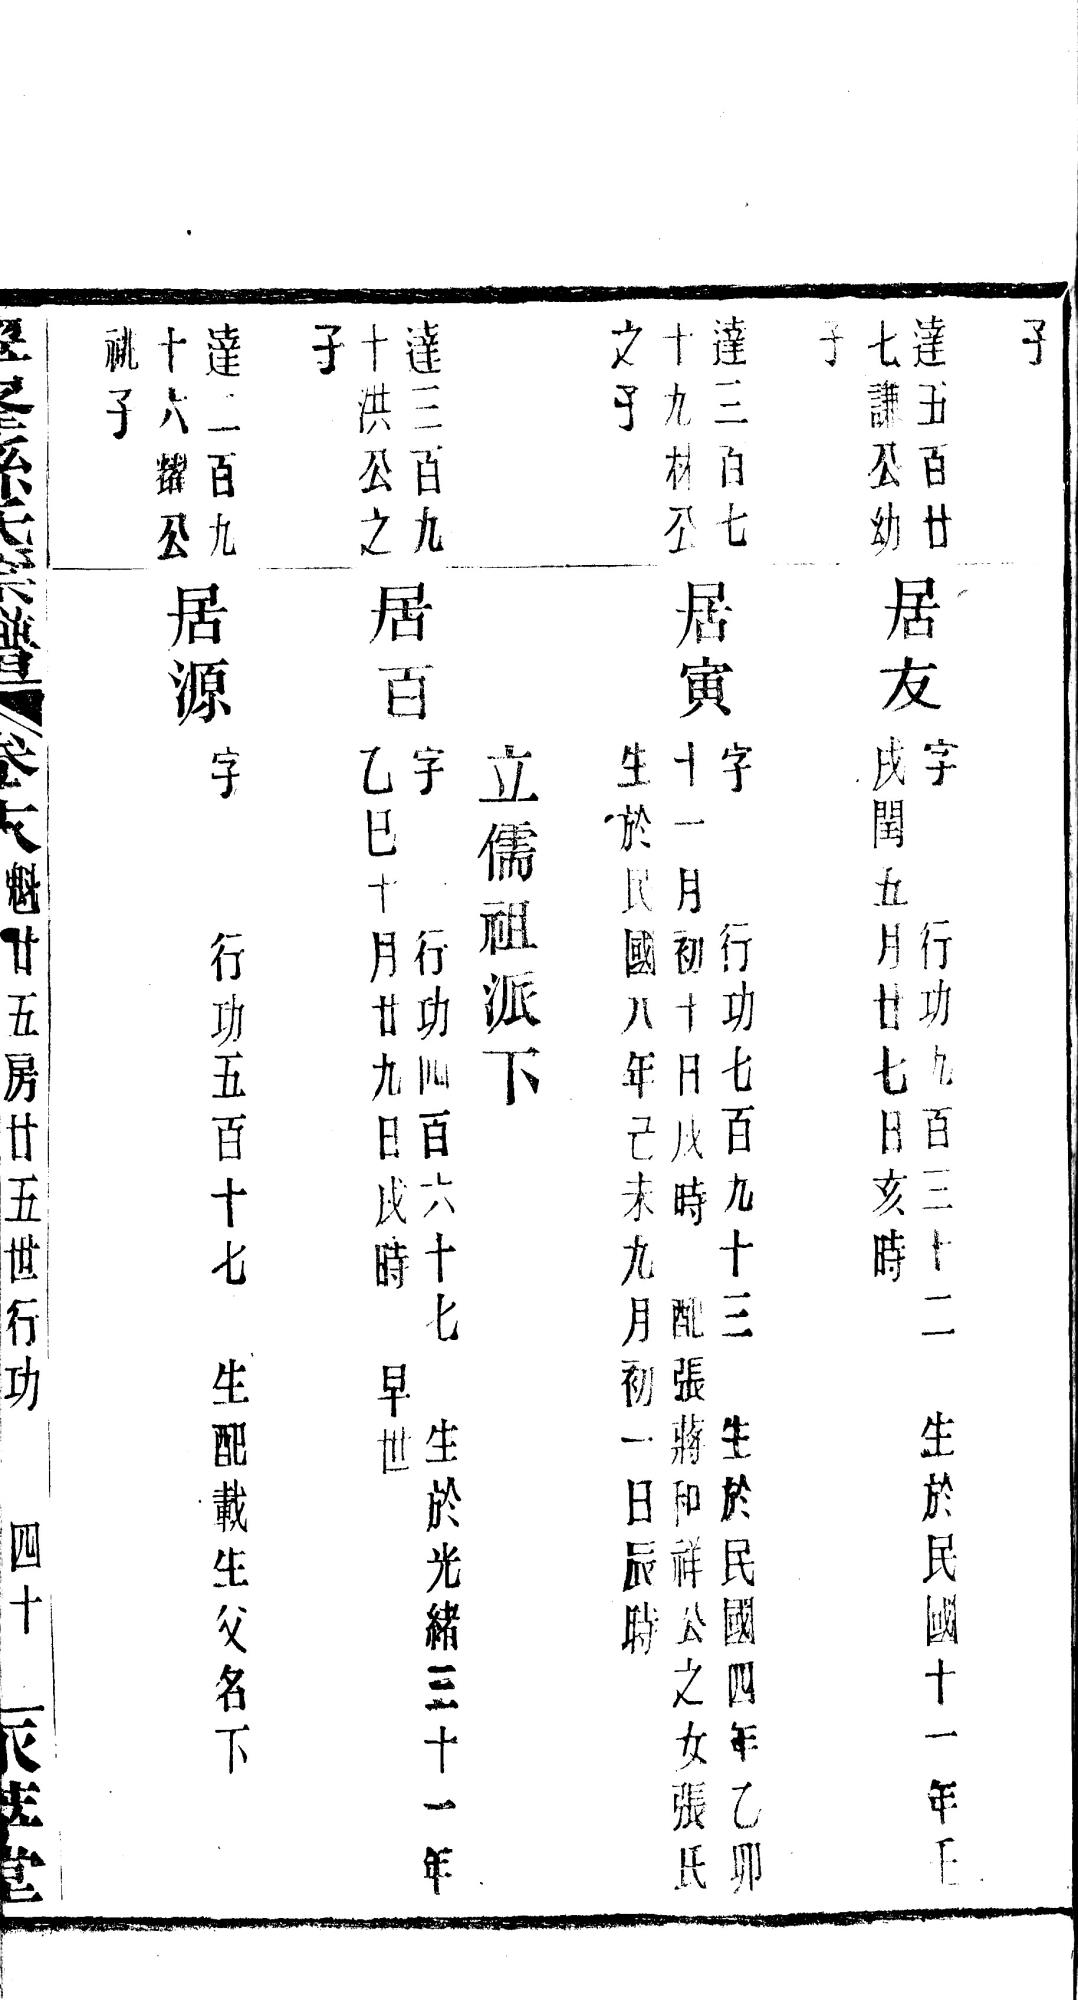 子
達五百廿
七謙公幼
子
居友
字 行功九百三十二 生於民國十一年壬
戌閏五月廿七日亥時
達三百七
十九林公
之子
居寅
字 行功七百九十三 生於民國四年乙卯
十一月初十日戌時 配張蔣和祥公之女張氏
生於民國八年己未九月初一日辰時
立儒祖派下
達三百九
十洪公之
子
居百
字 行功四百六十七 生於光緒三十一年
乙巳十月廿九日戌時 早世
達二百九
十六耀公
祧子
居源
字 行功五百十七 生配載生父名下
孫氏宗譜 卷 魁廿五房廿五世行功 四十 堂